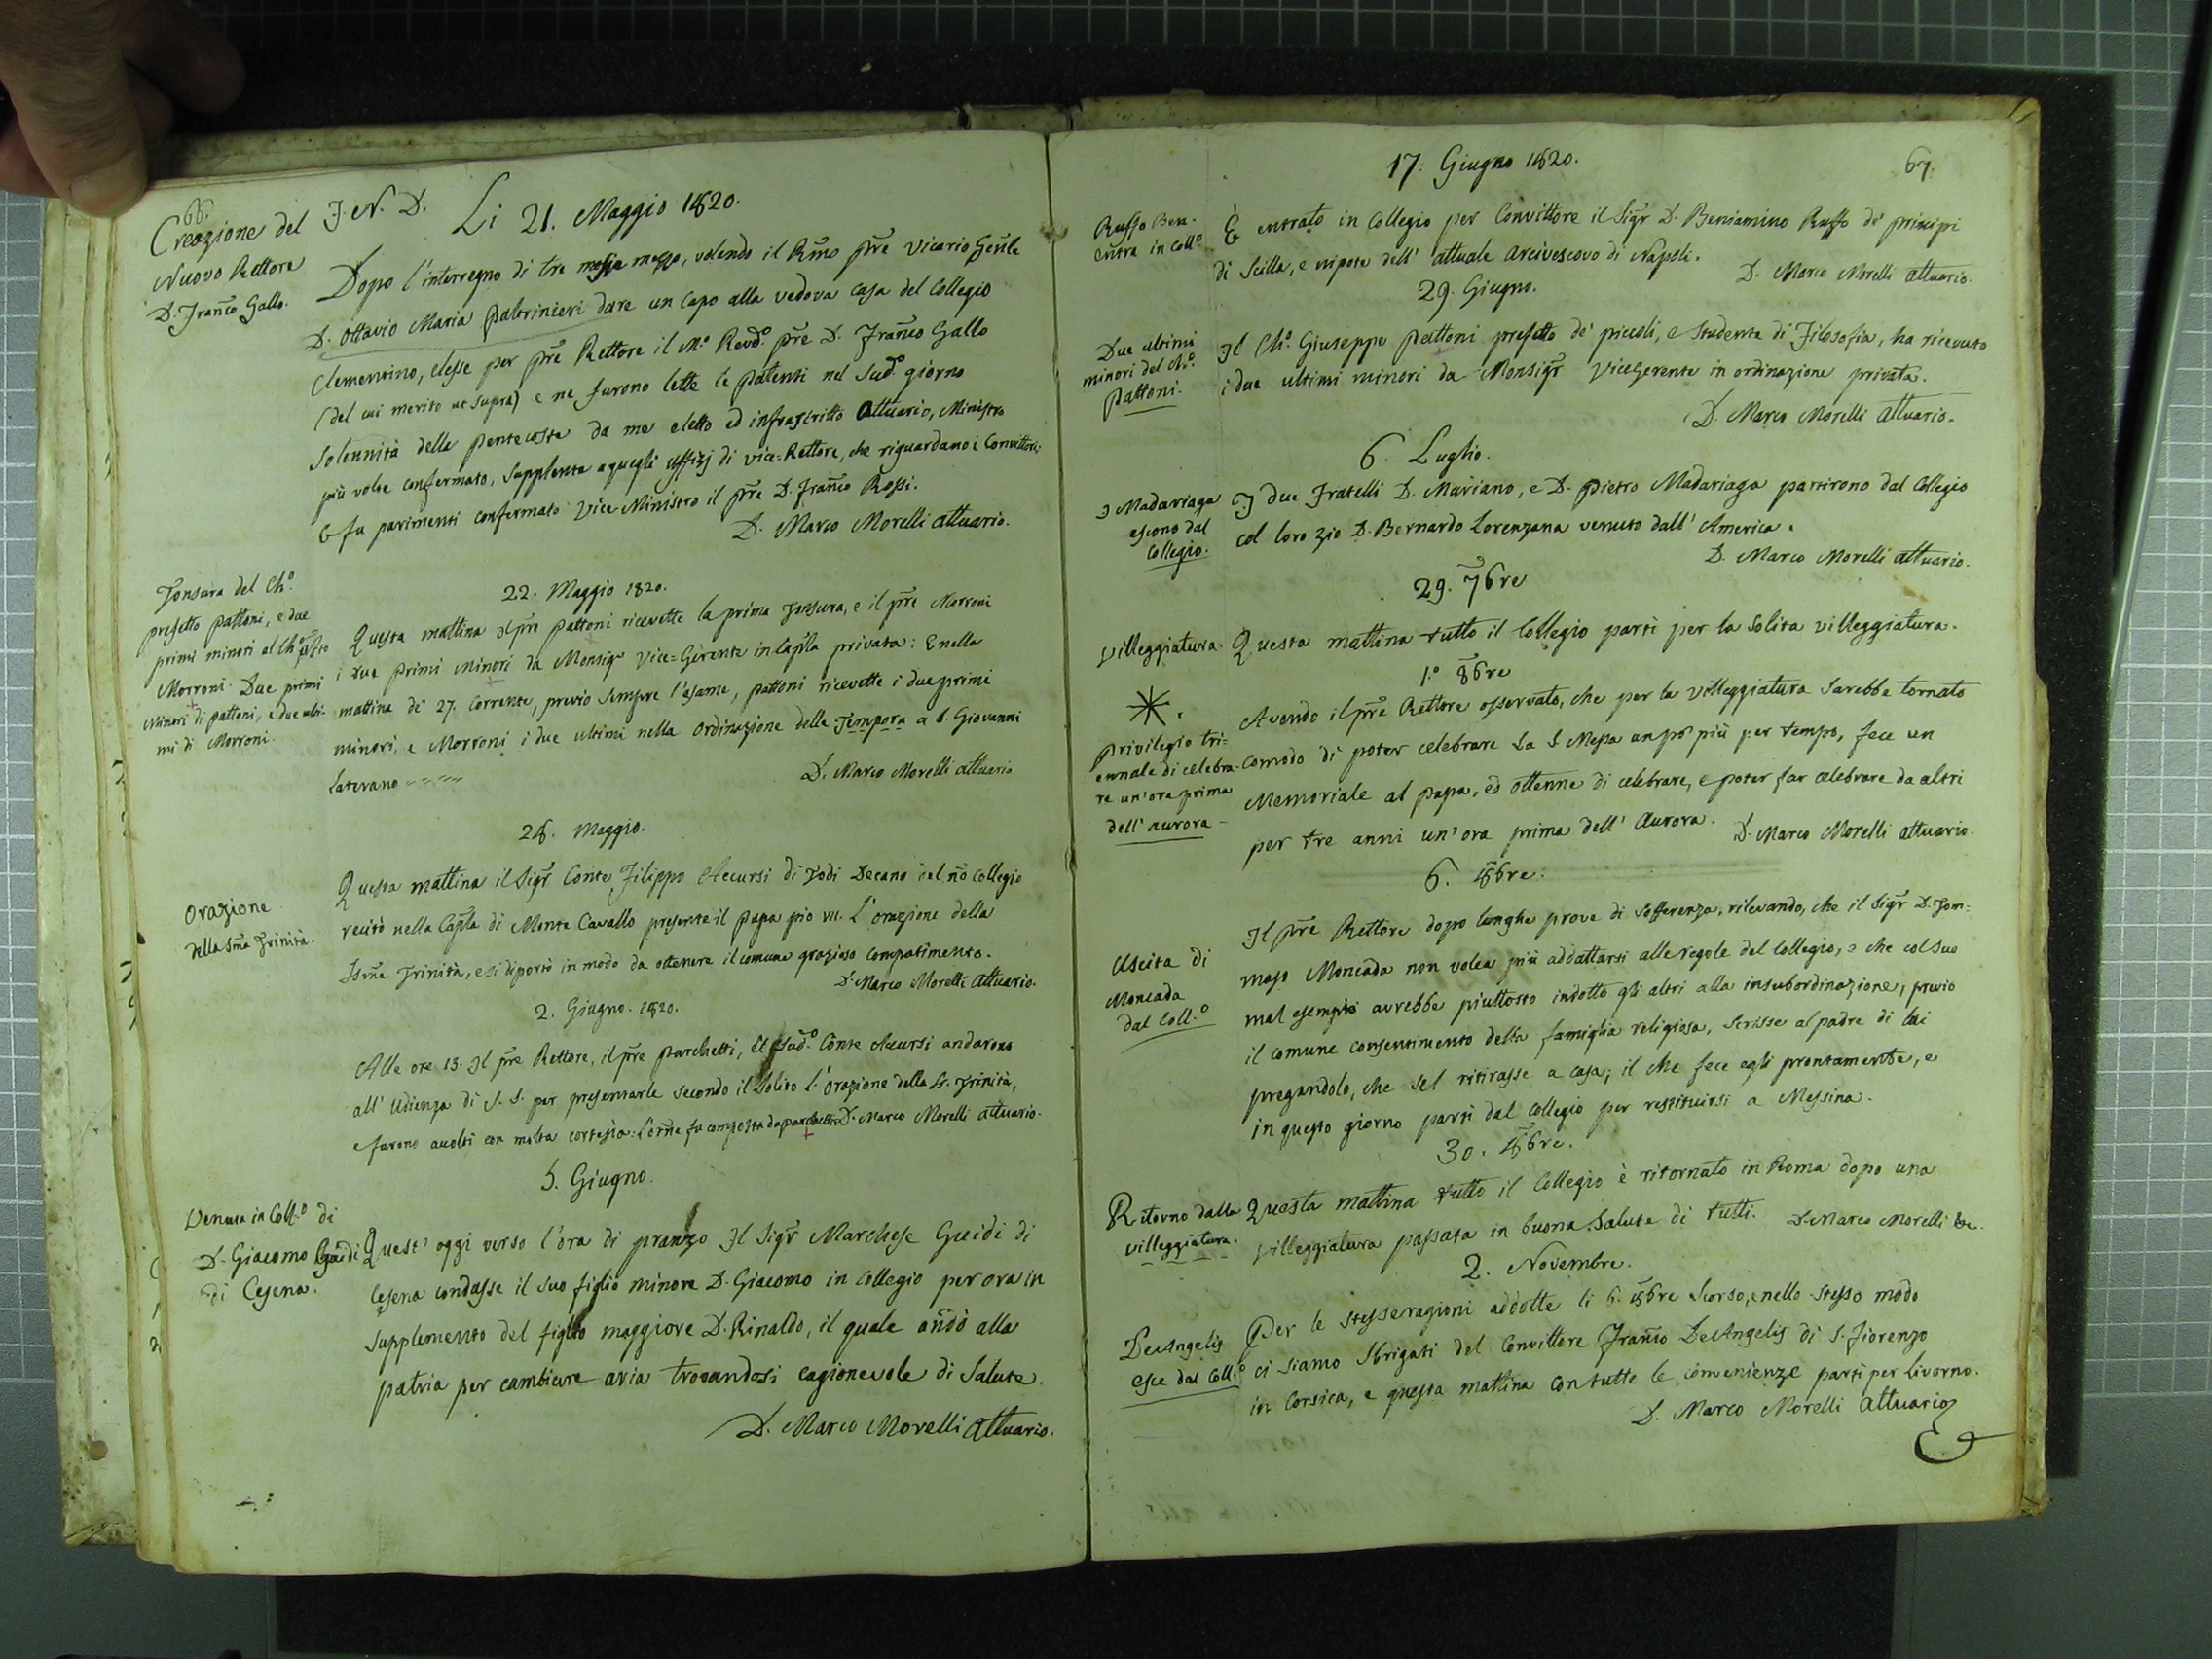 66.
J. N. D. Li 21. Maggio 1820.
Creazione del
Nuovo Rettore
D. Franco Gallo.
Dopo l'interregno di tre mesi e mezzo, volendo il Rmo pre Vicario Genle
D. Ottavio Maria Paltrinieri dare un Capo alla vedova Casa del Collegio
Clementino, elesse per pre Rettore il M.o Revd.o pre D. Franco Gallo
(del cui merito ut supra) e ne furono lette le Patenti nel Sud.o giorno
Solennità della Pentecoste da me eletto ed infrascritto Attuario, Ministro
più volte confermato, Supplente a quegli uffizj di vice-Rettore, che riguardano i Convittori:
E fu parimenti confermato Vice-Ministro il pre D. Franco Rossi.
D. Marco Morelli Attuario.
Tonsura del Ch.o
prefetto Pattoni, e due
primi minori al Ch.o pfetto
Morroni. Due primi
Minori di Pattoni, e due ulti-
mi di Morroni.
22. Maggio 1820.
Questa mattina il pre Pattoni ricevette la prima Tonsura, e il pre Morroni
i due primi minori da Monsigr Vice-Gerente in Capla privata: E nella
mattina de' 27. Corrente, previo sempre l'esame, Pattoni ricevette i due primi
minori, e Morroni i due ultimi nella Ordinazione delle Tempora a S. Giovanni
Laterano
D. Marco Morelli Attuario
28. Maggio.
Orazione
della Sma Trinità.
Questa mattina il Sigr Conte Filippo Accursi di Todi Decano del no Collegio
recitò nella Capla di Monte Cavallo presente il Papa Pio VII. L'orazione della
Ssma Trinità, e si diportò in modo da ottenere il comune grazioso compatimento.
D. Marco Morelli Attuario.
2. Giugno. 1820.
Alle ore 13. Il pre Rettore, il pre Parchetti, il Sud.o Conte Accursi andarono
all' Udienza di S. S. per presentarle secondo il Solito l'Orazione della Ss. Trinità,
e furono accolti con molta cortesia: L'orne fu composta da Parchetti D. Marco Morelli Attuario.
5. Giugno.
Venuta in Coll.o di
D. Giacomo Guidi
di Cesena.
Quest' oggi verso l'ora di pranzo Il Sigr Marchese Guidi di
Cesena condusse il suo figlio minore D. Giacomo in Collegio per ora in
supplemento del figlio maggiore D. Rinaldo, il quale andò alla
patria per cambiare aria trovandosi cagionevole di Salute.
D. Marco Morelli Attuario.
67.
17. Giugno 1820.
Ruffo Ben.
entra in Coll.o
È entrato in Collegio per Convittore il Sigr D. Beniamino Ruffo de' principi
di Scilla, e nipote dell' attuale Arcivescovo di Napoli.
D. Marco Morelli Attuario.
29. Giugno.
Due ultimi
minori del Ch.o
Pattoni.
Il Ch.o Giuseppe Pattoni prefetto de' piccoli, e Studente di Filosofia, ha ricevuto
i due ultimi minori da Monsigr Vicegerente in ordinazione privata.
D. Marco Morelli Attuario.
6. Luglio.
I Madariaga
escono dal
Collegio.
I due Fratelli D. Mariano, e D. Pietro Madariaga partirono dal Collegio
col loro zio D. Bernardo Lorenzana venuto dall' America.
D. Marco Morelli Attuario.
29. 7bre
Villeggiatura.
Questa mattina tutto il Collegio partì per la Solita villeggiatura.
1.o 8bre
Privilegio tri=
ennale di celebra-
re un'ora prima
dell'aurora -
Avendo il pre Rettore osservato, che per la Villeggiatura sarebbe tornato
comodo di poter celebrare la S. Messa un po' più per tempo, fece un
Memoriale al Papa, ed ottenne di celebrare, e poter far celebrare da altri
per tre anni un'ora prima dell' Aurora.
D. Marco Morelli Attuario.
6. 8bre.
Uscita di
Moncada
dal Coll.o
Il pre Rettore dopo lunghe prove di Sofferenza, rilevando, che il Sigr D. Tom=
maso Moncada non volea più addattarsi alle regole del Collegio, e che col Suo
mal esempio avrebbe piuttosto indotto gli altri alla insubordinazione, previo
il comune consentimento della famiglia religiosa, scrisse al padre di lui
pregandolo, che sel ritirasse a casa; il che fece egli prontamente, e
in questo giorno partì dal Collegio per restituirsi a Messina.
30. 8bre.
Ritorno dalla
villeggiatura.
Questa mattina tutto il Collegio è ritornato in Roma dopo una
villeggiatura passata in buona Salute di tutti.
D. Marco Morelli &c.
2. Novembre.
De Angelis
esce dal Coll.o
Per le stesse ragioni addotte li 6. 8bre Scorso, e nello stesso modo
ci siamo Sbrigati del Convittore Franco De Angelis di S. Fiorenzo
in Corsica, e questa mattina con tutte le convenienze partì per Livorno.
D. Marco Morelli Attuario